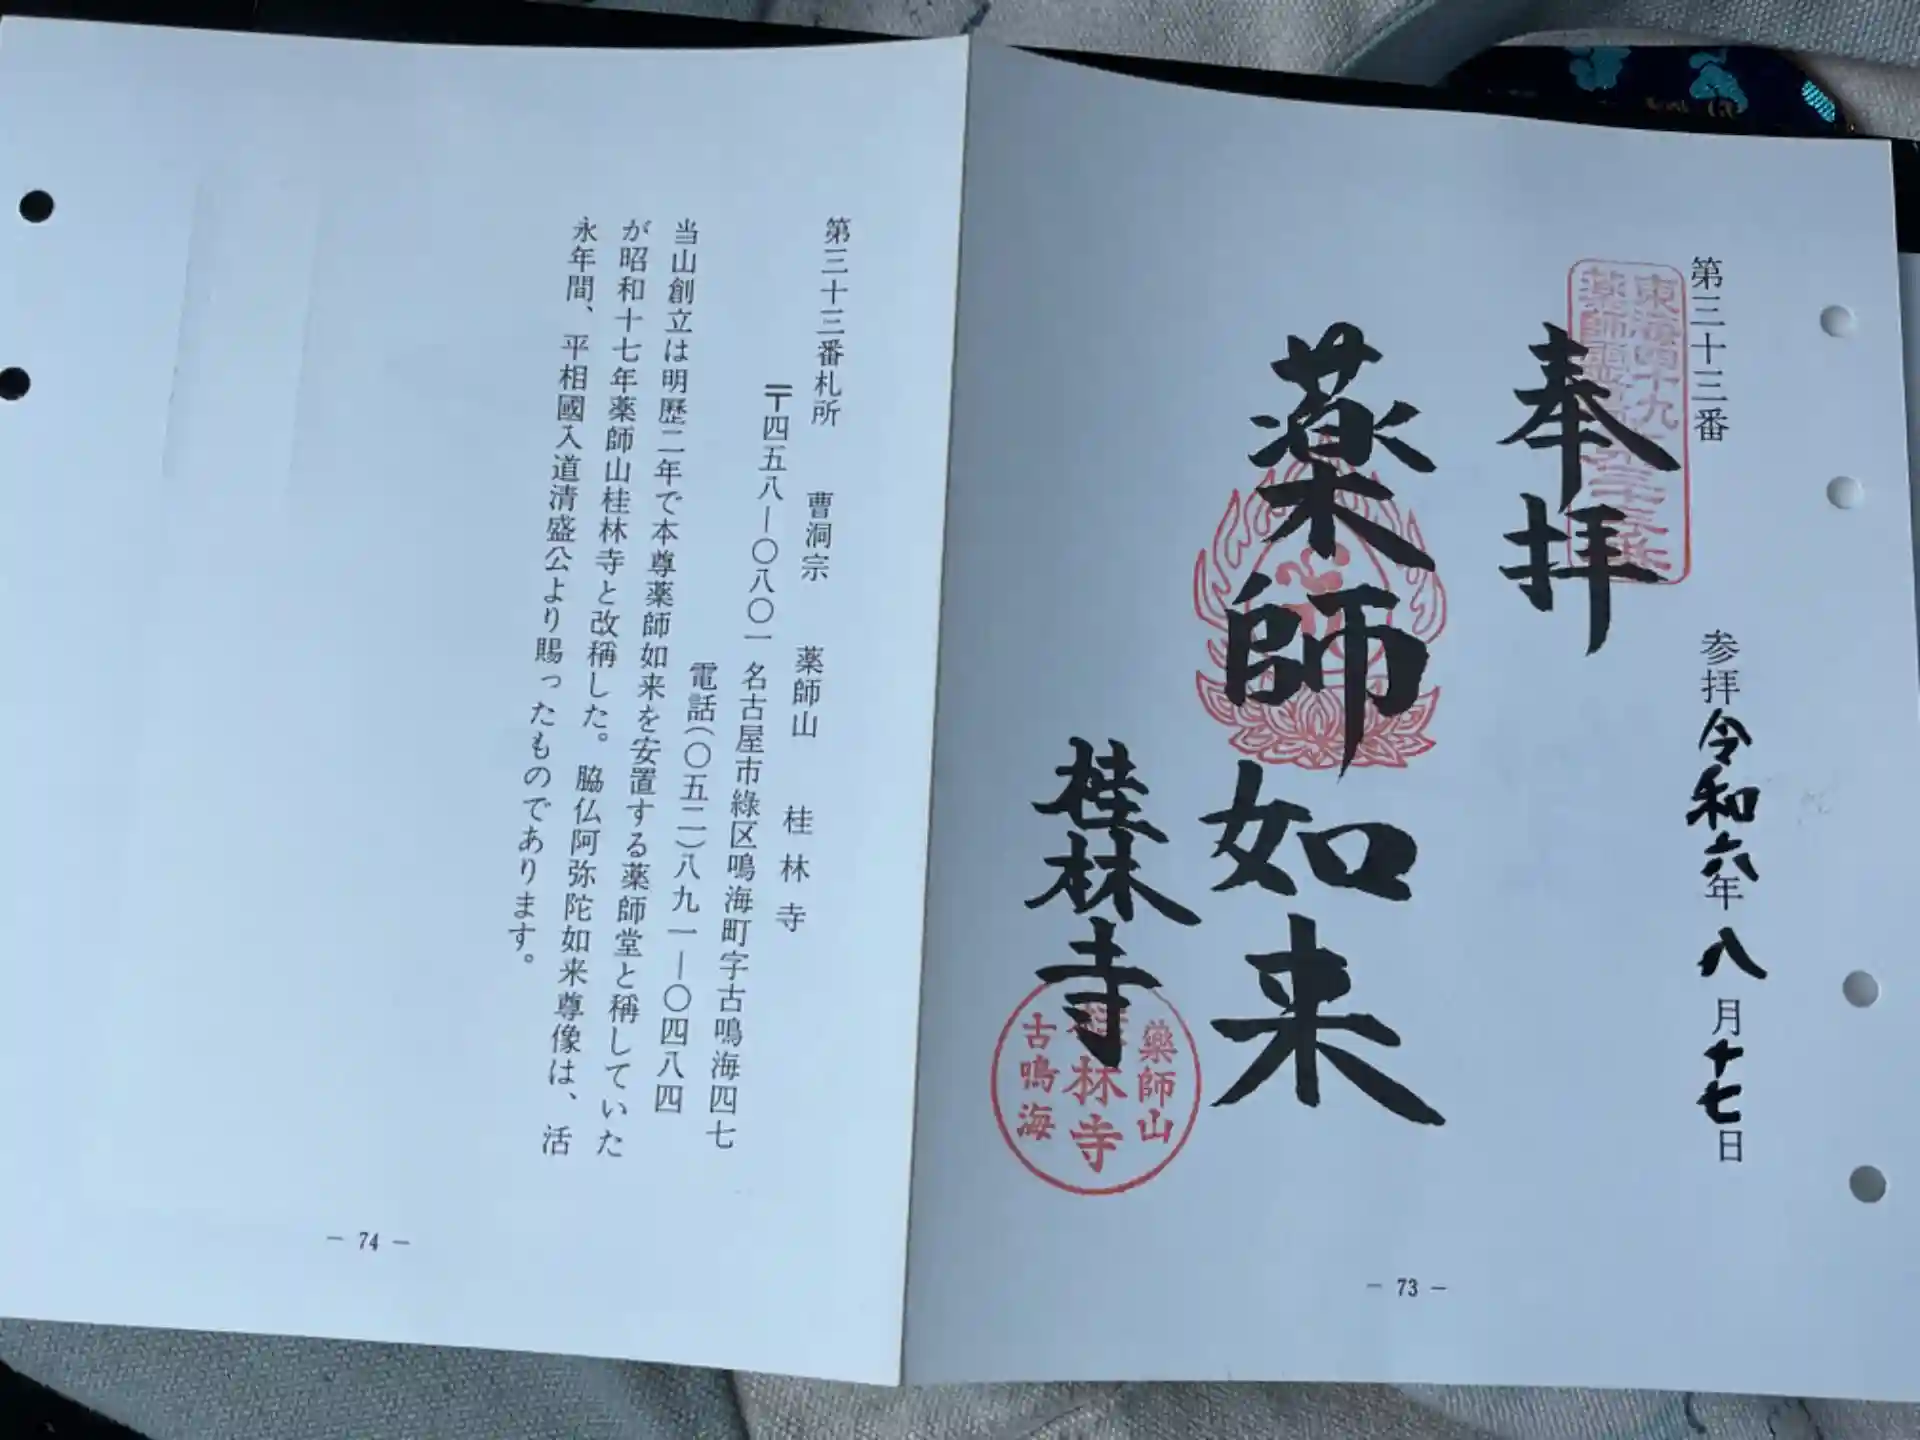 第三十三番
参拝令和六年八月十七日
奉拝
東海四十九
薬師霊
第三十三番
薬師如来
桂林寺
薬師山
桂林寺
古鳴海
－ 73 －
第三十三番札所 曹洞宗 薬師山 桂林寺
〒四五八―〇八〇一 名古屋市緑区鳴海町字古鳴海四七
電話(〇五二)八九一―〇四八四
当山創立は明歴二年で本尊薬師如来を安置する薬師堂と稱していた
が昭和十七年薬師山桂林寺と改稱した。脇仏阿弥陀如来尊像は、活
永年間、平相國入道清盛公より賜ったものであります。
－ 74 －